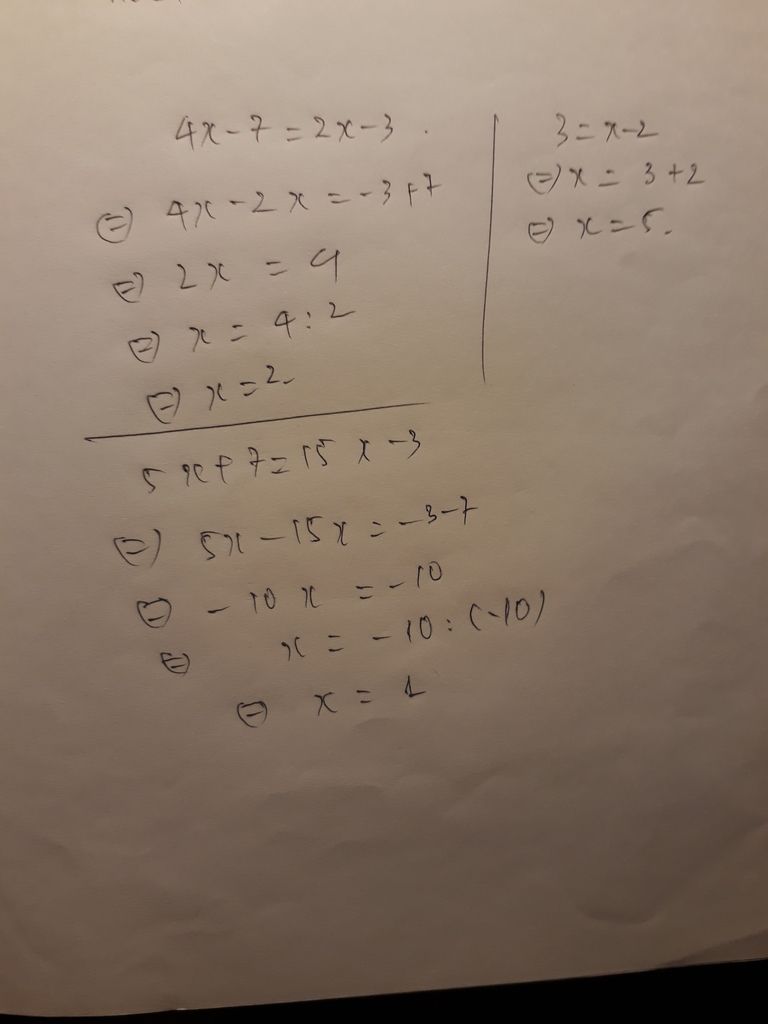 4x - 7 = 2x - 3.
⇔ 4x - 2x = -3 + 7
⇔ 2x = 4
⇔ x = 4 : 2
⇔ x = 2.
3 = x - 2
⇔ x = 3 + 2
⇔ x = 5.
5x + 7 = 15x - 3
⇔ 5x - 15x = -3 - 7
⇔ -10x = -10
⇔ x = -10 : (-10)
⇔ x = 1